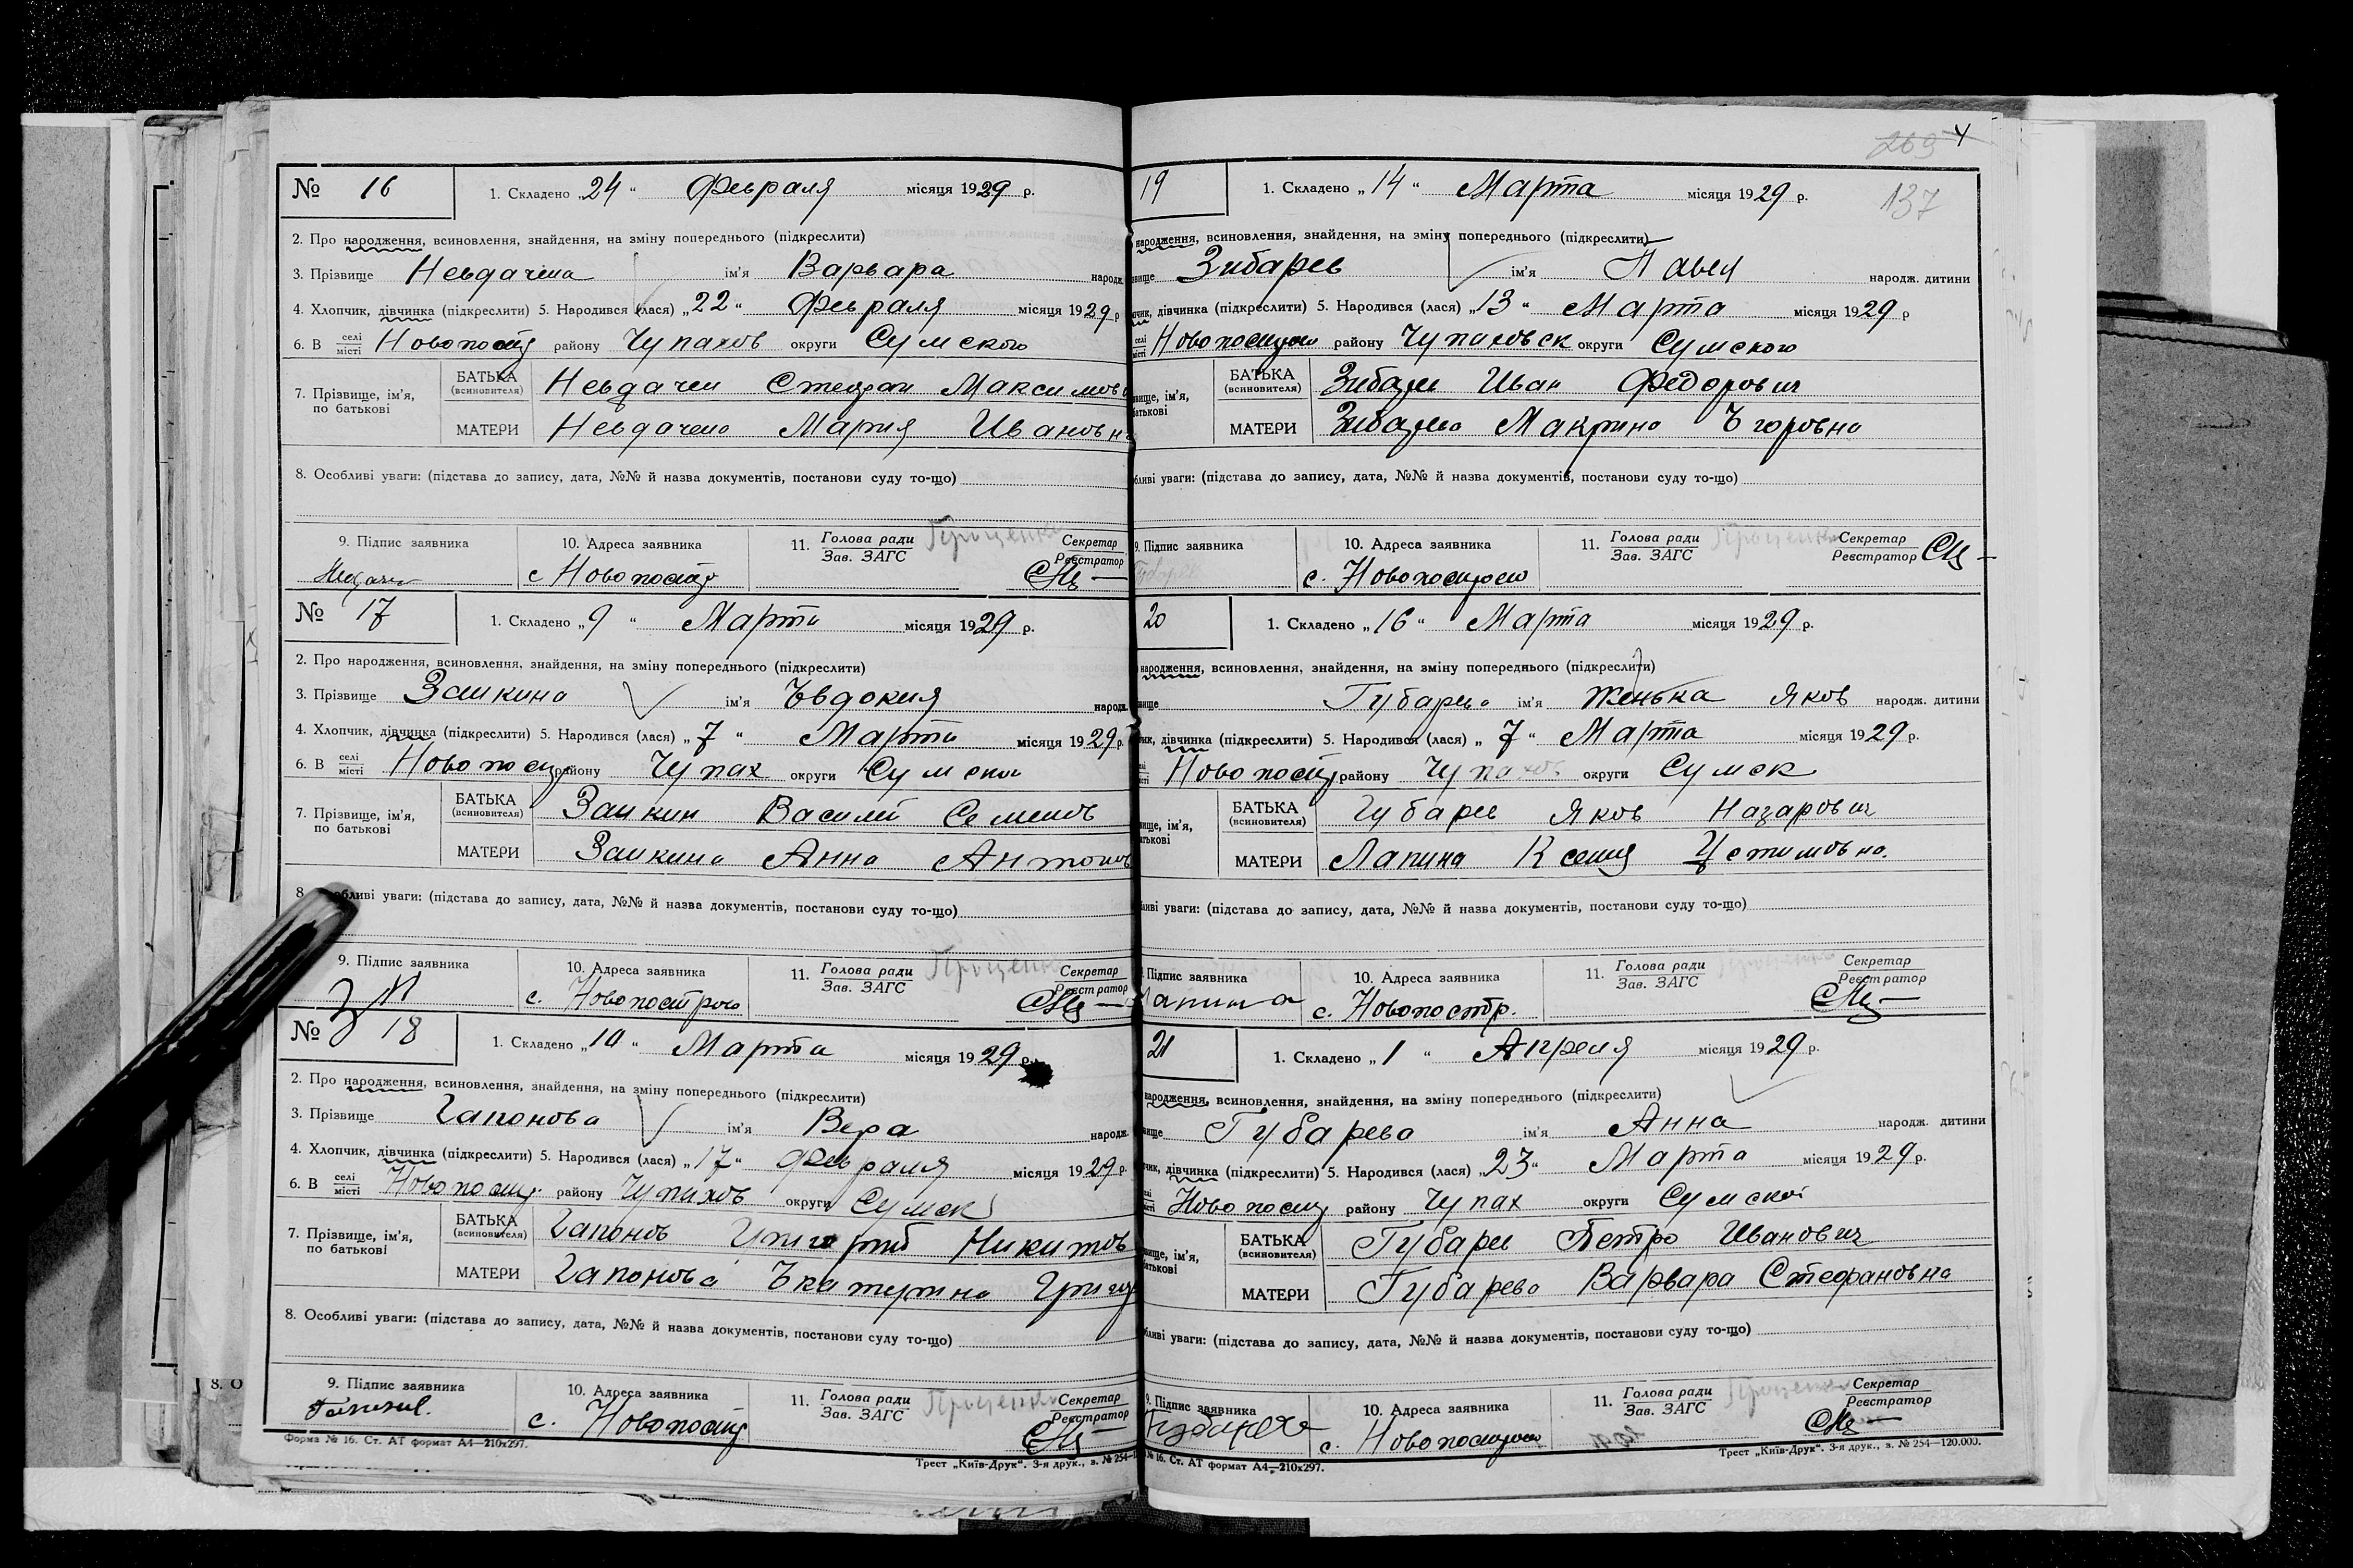 № 16 1. Складено „24“ Февраля місяця 1929 р.
2. Про народження, всиновлення, знайдення, на зміну попереднього (підкреслити)
3. Прізвище Невдачина ім'я Варвара народж.
4. Хлопчик, дівчинка (підкреслити) 5. Народився (лася) „22“ Февраля місяця 1929 р
6. В селі місті району Чупахов округи Сумского
7. Прізвище, ім'я, по батькові
БАТЬКА (всиновителя) Невдачин Стефан Максимов
МАТЕРИ Мария Ивановн
8. Особливі уваги: (підстава до запису, дата, №№ й назва документів, постанови суду то-що)
9. Підпис заявника 10. Адреса заявника 11. Голова ради Зав. ЗАГС Проценко Секретар Реєстратор
№ 17 1. Складено „9“ Марта місяця 1929 р.
2. Про народження, всиновлення, знайдення, на зміну попереднього (підкреслити)
3. Прізвище Заикина ім'я Евдокия народж.
4. Хлопчик, дівчинка (підкреслити) 5. Народився (лася) „7“ Марта місяця 1929 р.
6. В селі місті району Чупах округи
7. Прізвище, ім'я, по батькові
БАТЬКА (всиновителя) Заикин Василий Семенов
МАТЕРИ Заикина Анна Антонов
8. Особливі уваги: (підстава до запису, дата, №№ й назва документів, постанови суду то-що)
9. Підпис заявника 10. Адреса заявника 11. Голова ради Зав. ЗАГС Проценко Секретар Реєстратор
с. Новопострою
№ 18 1. Складено „10“ Марта місяця 1929 р.
2. Про народження, всиновлення, знайдення, на зміну попереднього (підкреслити)
3. Прізвище Гапонова ім'я Вера народж.
4. Хлопчик, дівчинка (підкреслити) 5. Народився (лася) „17“ Февраля місяця 1929 р.
6. В селі місті району Чупахов округи Сумск
7. Прізвище, ім'я, по батькові
БАТЬКА (всиновителя) Гапонов Никитов
МАТЕРИ Гапонова Екатерина Григор
8. Особливі уваги: (підстава до запису, дата, №№ й назва документів, постанови суду то-що)
9. Підпис заявника 10. Адреса заявника 11. Голова ради Зав. ЗАГС Проценко Секретар Реєстратор
Форма № 16. Ст. АТ формат А4—210x297.
Трест „Київ-Друк“. 3-я друк., з. № 254—
269 4
137
19 1. Складено „14“ Марта місяця 1929 р.
народження, всиновлення, знайдення, на зміну попереднього (підкреслити)
Зибарев ім'я Павел народж. дитини
дівчинка (підкреслити) 5. Народився (лася) „13“ Марта місяця 1929 р
району Чупаховск округи Сумского
БАТЬКА (всиновителя) Иван Федорович
МАТЕРИ Макрина Егоровна
уваги: (підстава до запису, дата, №№ й назва документів, постанови суду то-що)
9. Підпис заявника 10. Адреса заявника 11. Голова ради Зав. ЗАГС Проценко Секретар Реєстратор
20 1. Складено „16“ Марта місяця 1929 р.
народження, всиновлення, знайдення, на зміну попереднього (підкреслити)
Губарева ім'я Женька Яков народж. дитини
дівчинка (підкреслити) 5. Народився (лася) „7“ Марта місяця 1929 р.
району Чупахов округи Сумск
БАТЬКА (всиновителя) Губарев Яков Назарович
МАТЕРИ Лапина Ксения Устимовна.
уваги: (підстава до запису, дата, №№ й назва документів, постанови суду то-що)
Підпис заявника 10. Адреса заявника 11. Голова ради Зав. ЗАГС Секретар Реєстратор
Лапина с. Новопостр.
21 1. Складено „1“ Апреля місяця 1929 р.
народження, всиновлення, знайдення, на зміну попереднього (підкреслити)
Губарева ім'я Анна народж. дитини
дівчинка (підкреслити) 5. Народився (лася) „23“ Марта місяця 1929 р.
району Чупах округи Сумской
БАТЬКА (всиновителя) Губарев Петро Иванович
МАТЕРИ Губарева Варвара Стефановна
уваги: (підстава до запису, дата, №№ й назва документів, постанови суду то-що)
9. Підпис заявника 10. Адреса заявника 11. Голова ради Зав. ЗАГС Проценко Секретар Реєстратор
№ 16. Ст. АТ формат А4—210x297.
Трест „Київ-Друк“. 3-я друк., з. № 254—120.000.